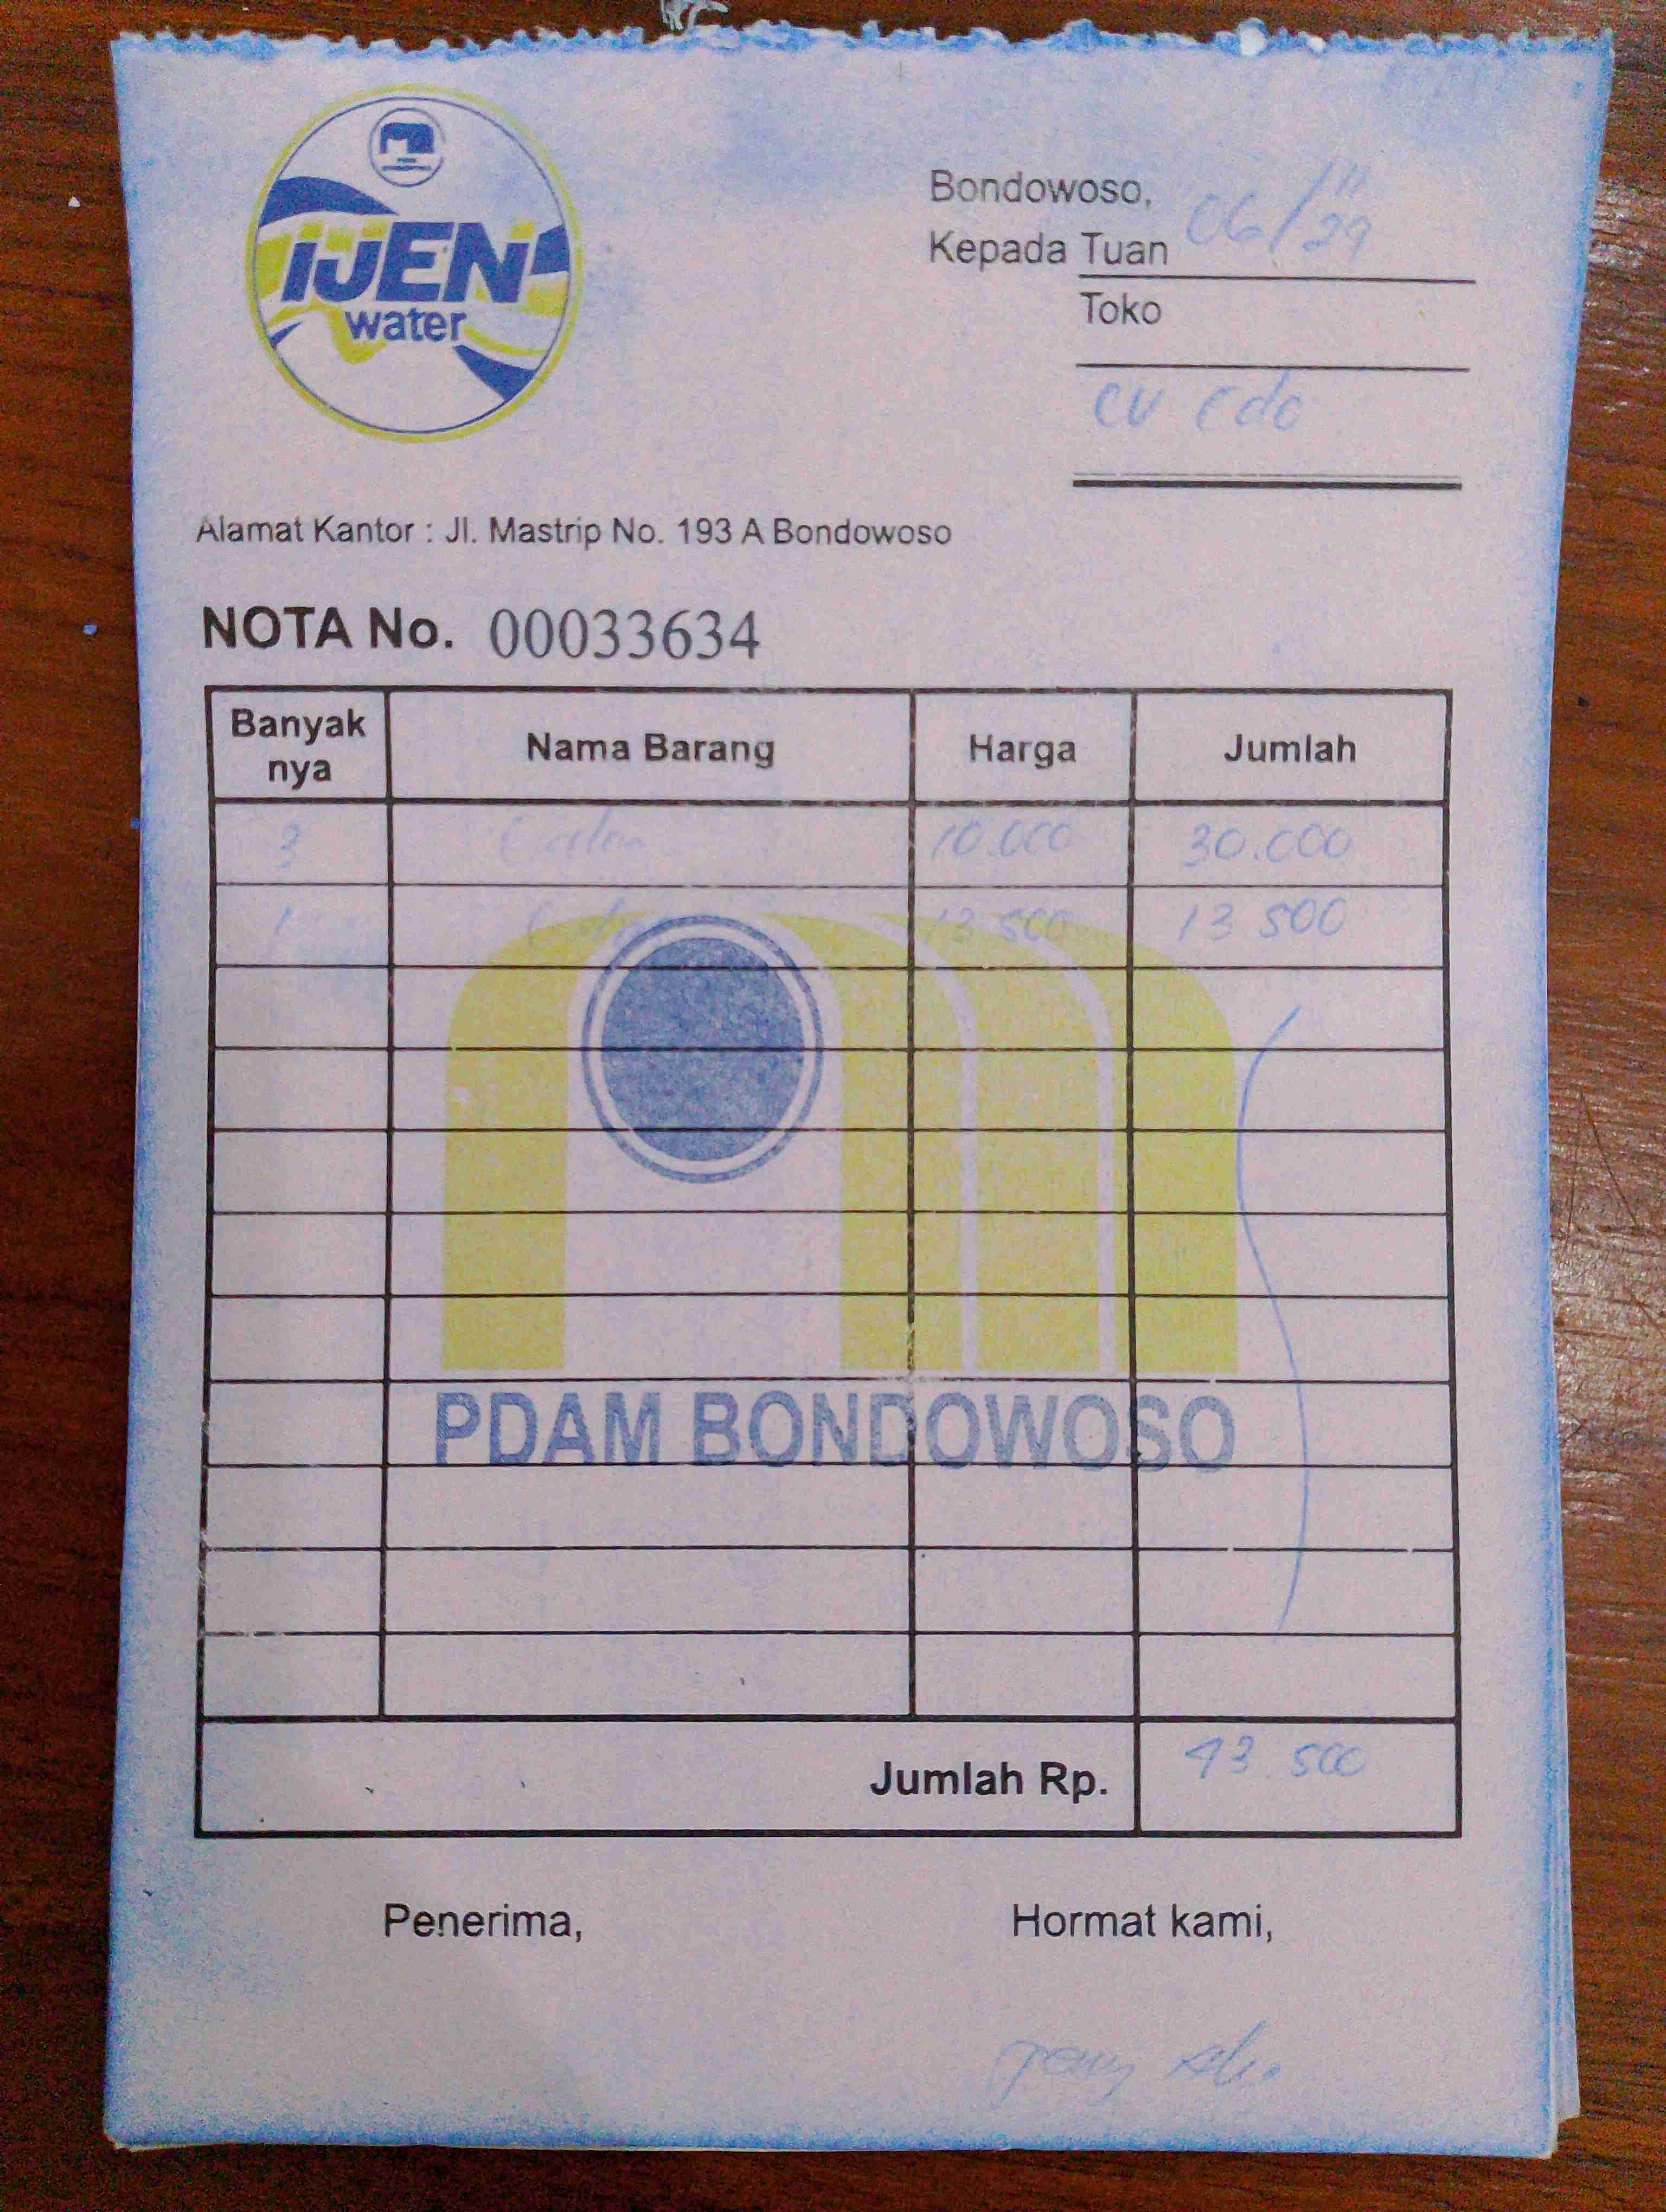 iJEN
water
Bondowoso, 06/11
Kepada Tuan
Toko
cv edo
Alamat Kantor : Jl. Mastrip No. 193 A Bondowoso
NOTA No. 00033634
Banyak nya Nama Barang Harga Jumlah
3 10.000 30.000
1 13 500 13 500
PDAM BONDOWOSO
Jumlah Rp. 43 500
Penerima, Hormat kami,